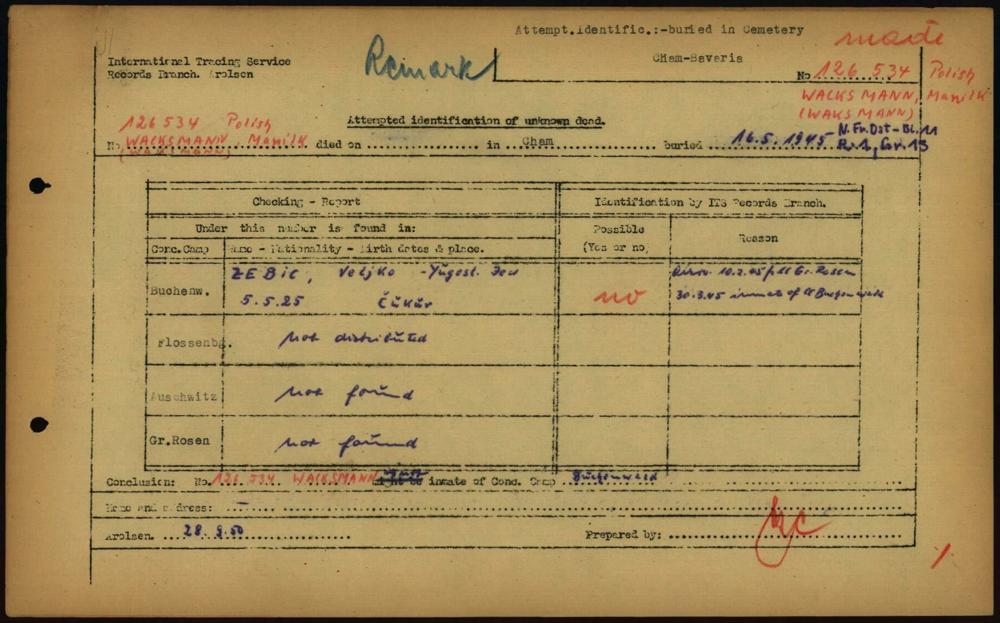 Attempt.Identific.:-buried in Cemetery
made
Remark
Cham-Bavaria
International Tracing Service
Records Branch. Arolsen
No 126 534 Polish
WACKSMANN, Manilk
(WAKSMANN)
Attempted identification of unknown dead.
126534 Polish
No WACKSMANN Manilk died on ............... in Cham ............... buried 16.5.1945 N.Fr.Dst-Bl.11
(WAKSMANN)
R.1, Gr.13
Checking - Report
Identification by ITS Records Branch.
Under this number is found in:
Possible
(Yes or no)
Reason
Conc.Camp
Name - Nationality - Birth dates & place.
Buchenw.
ZEBIC, Veljko - Yugosl. Jew
5.5.25 Čukur
no
10.2.45 f. Gr.Rosen
30.3.45 inmate of Buchenwald
Flossenbg.
not distributed
Auschwitz
not found
Gr.Rosen
not found
Conclusion: No. 126 534 WACKSMANN inmate of Conc. Camp Buchenwald
Name and address: —
Arolsen. 28.9.50
Prepared by: